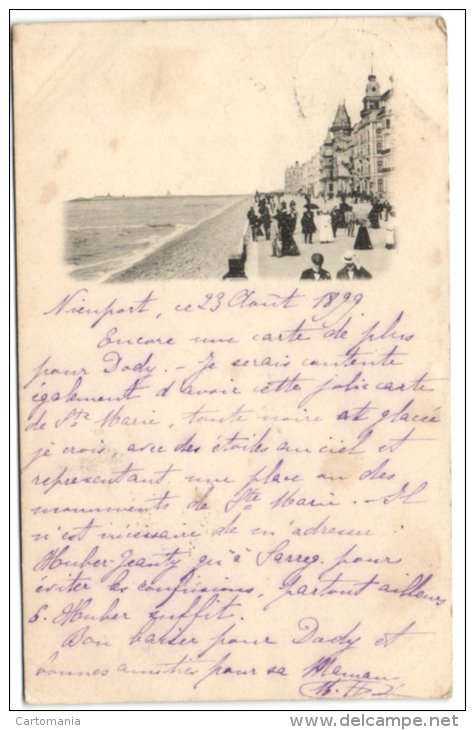 Nieuport, ce 23 Août 1899
Encore une carte de plus
pour Dody. - Je serais contente
également d'avoir cette jolie carte
de Ste Marie, toute noire et glacée
je crois, avec des étoiles au ciel et
représentant une place ou des
monuments de Ste Marie. - Il
n'est nécessaire de m'adresser
Huber-Jeanty qu'à Sarreg. pour
éviter les confusions, partout ailleurs
E. Huber suffit.
Bon baiser pour Dody et
bonnes amitiés pour sa Maman
Cartomania
http://www.delcampe.net